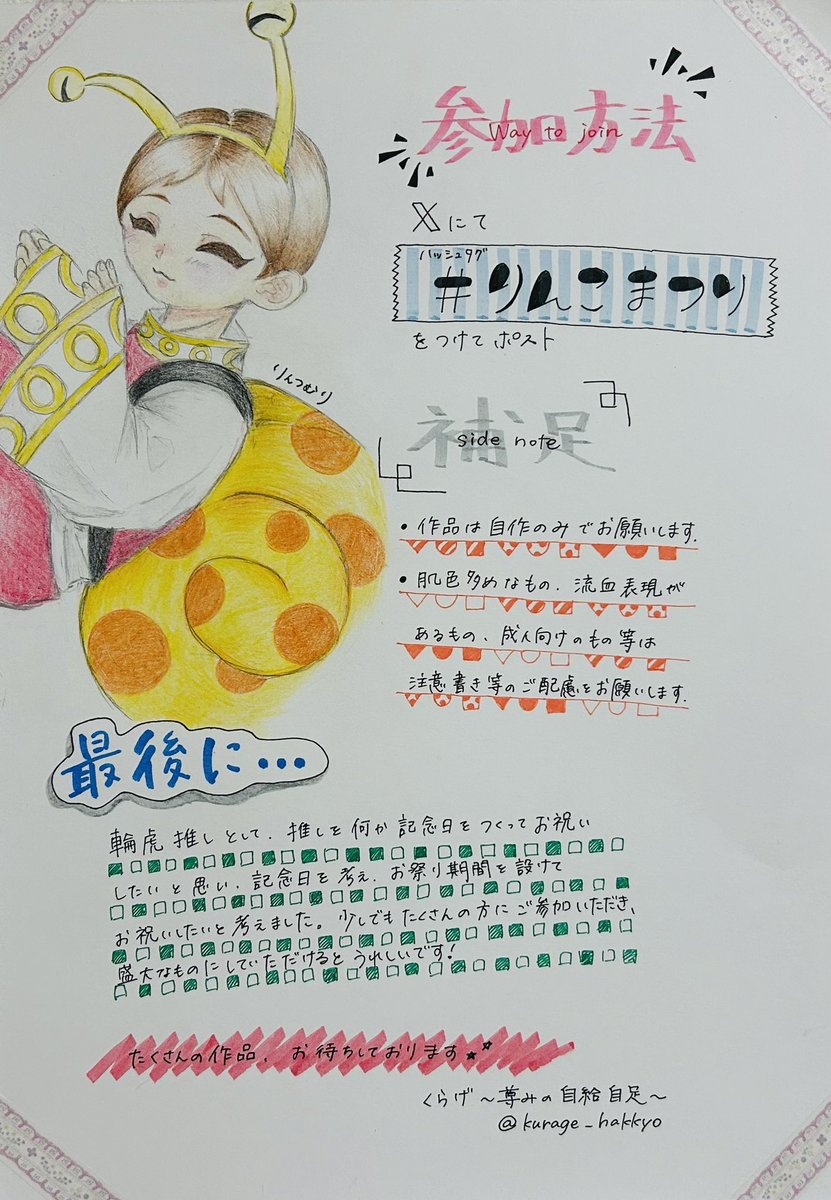 参加方法
Way to join
𝕏にて
ハッシュタグ
#りんこまつり
をつけてポスト
りんつむり
補足
side note
• 作品は自作のみでお願いします.
• 肌色多めなもの、流血表現が
あるもの、成人向けのもの等は
注意書き等のご配慮をお願いします.
最後に…
輪虎推しとして、推しを何か記念日をつくってお祝い
したいと思い、記念日を考え、お祭り期間を設けて
お祝いしたいと考えました。少しでもたくさんの方にご参加いただき、
盛大なものにしていただけるとうれしいです!
たくさんの作品、お待ちしております★★
くらげ〜尊みの自給自足〜
@kurage_hakkyo